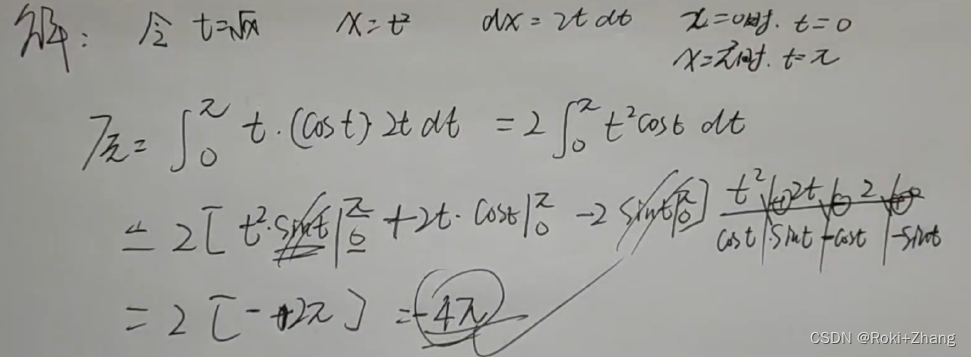 解: 令 t=√x x=t² dx=2t dt x=0时. t=0
x=π²时. t=π
原=∫₀^π t·(cost) 2t dt = 2∫₀^π t²cost dt
= 2[t²·sint|₀^π + 2t·cost|₀^π - 2 sint|₀^π] t² 2t 2 0
cost sint -cost -sint
= 2[-2π] = -4π
CSDN @Roki+Zhang